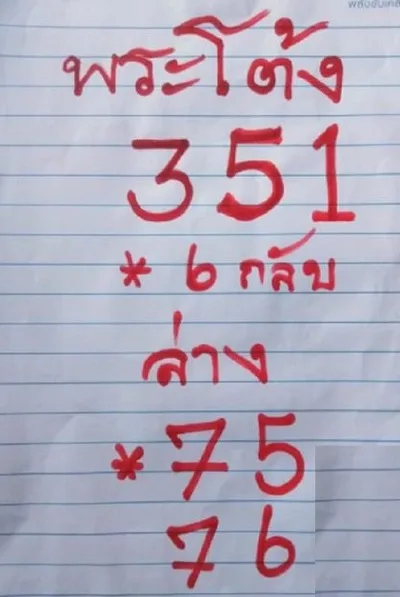 พระโต้ง
351
* 6 กลับ
ล่าง
* 75
76